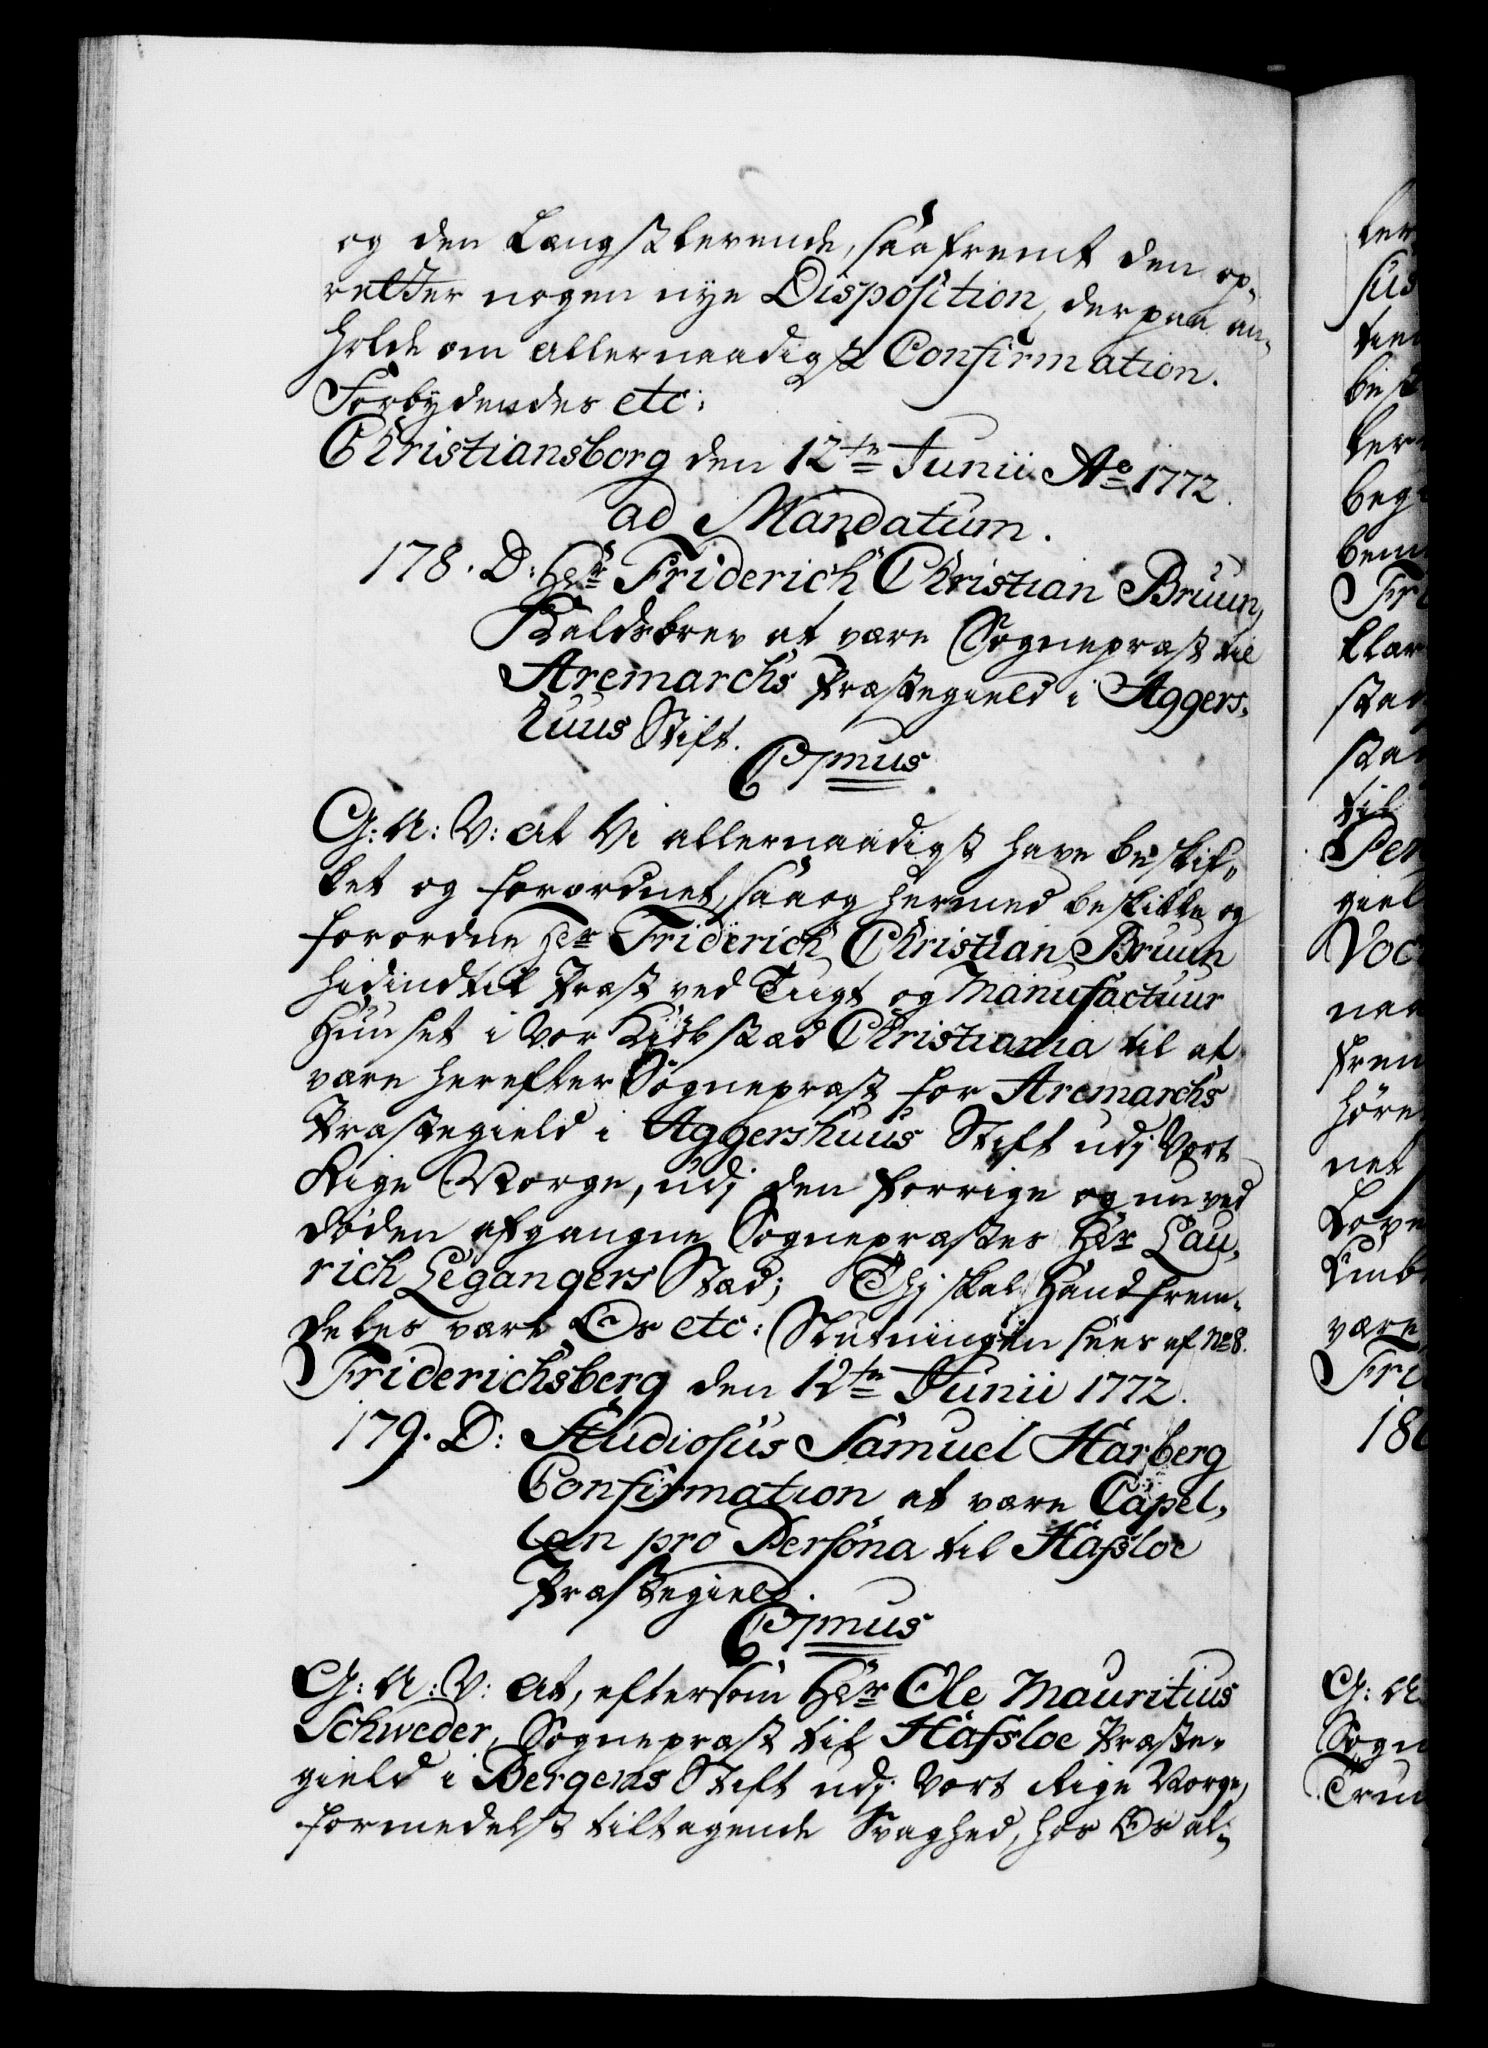 og den Længstlevende, saafremt den op-
retter nogen nye Disposition, derpaa an-
holde om allernaadigst Confirmation.
Forbydendes etc:
Christiansborg den 12te Junii Ao 1772.
ad Mandatum.
178. D: Hr Friderich Christian Bruun,
Kaldsbrev at være Sognepræst til
Aremarchs Præstegield i Aggers-
huus Stift.
C7mus
G: A: V: at Vi allernaadigst have beskik-
ket og forordnet, saa og hermed beskikke og
forordne Hr Friderich Christian Bruun
hidindtil Præst ved Tugt og Manufactuur
Huuset i Vor Kiøbstad Christiania til at
være herefter Sognepræst for Aremarchs
Præstegield i Aggershuus Stift udj Vort
Rige Norge, udj den forrige og nu ved
døden afgangne Sognepræstes Hr Lau-
rich Leganger Stæd; Thj skal Hand frem-
deles være Os etc: Slutningen sees af No 8.
Friderichsberg den 12te Junii 1772.
179. D: Studiosus Samuel Harberg
Confirmation at være Capel-
lan pro Persona til Hafsloe
Præstegield.
C7mus
G: A: V: at, eftersom Hr Ole Mauritius
Schweder, Sognepræst til Hafsloe Præste-
gield i Bergens Stift udj Vort Rige Norge,
formedelst tiltagende Svaghed, hos Os al-